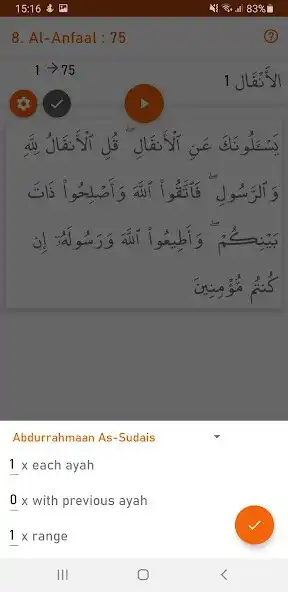 15:16 83%
8. Al-Anfaal : 75
1 → 75
الأَنْفَال 1
يَسْـَٔلُونَكَ عَنِ ٱلْأَنفَالِ ۖ قُلِ ٱلْأَنفَالُ لِلَّهِ
وَٱلرَّسُولِ ۖ فَٱتَّقُوا۟ ٱللَّهَ وَأَصْلِحُوا۟ ذَاتَ
بَيْنِكُمْ ۖ وَأَطِيعُوا۟ ٱللَّهَ وَرَسُولَهُۥٓ إِن
كُنتُم مُّؤْمِنِينَ
Abdurrahmaan As-Sudais
1 x each ayah
0 x with previous ayah
1 x range